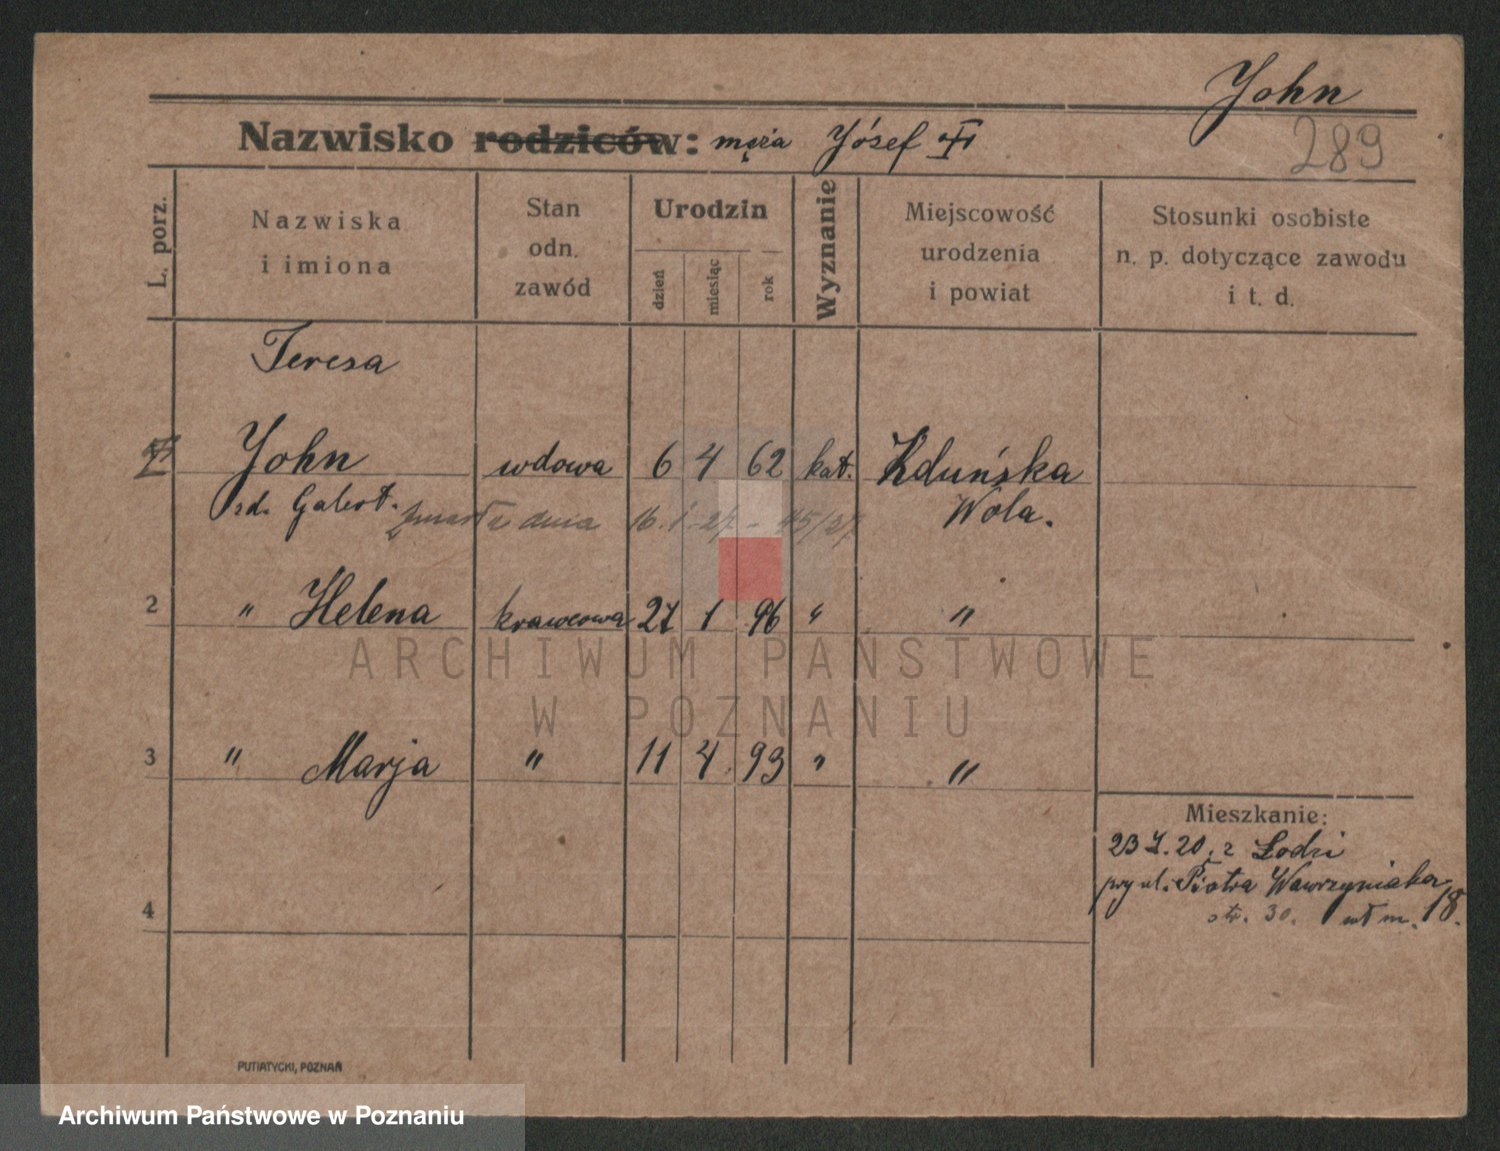 John
289
Nazwisko rodziców: męża Józef
L. porz.
Nazwiska i imiona
Stan odn. zawód
Urodzin
dzień
miesiąc
rok
Wyznanie
Miejscowość urodzenia i powiat
Stosunki osobiste n. p. dotyczące zawodu i t. d.
Teresa
John wdowa 6 4 62 kat. Zduńska
zd. Gabert. Wola.
zmarła dnia 16. 1. 27 - 45/27
2 " Helena krawcowa 27 1 96 " "
3 " Marja " 11 4 93 " "
4
Mieszkanie:
23 I. 20. z Łodzi
przy ul. Piotra Wawrzyniaka
str. 30. wł m. 18.
PUTIATYCKI, POZNAŃ
ARCHIWUM PAŃSTWOWE
W POZNANIU
Archiwum Państwowe w Poznaniu